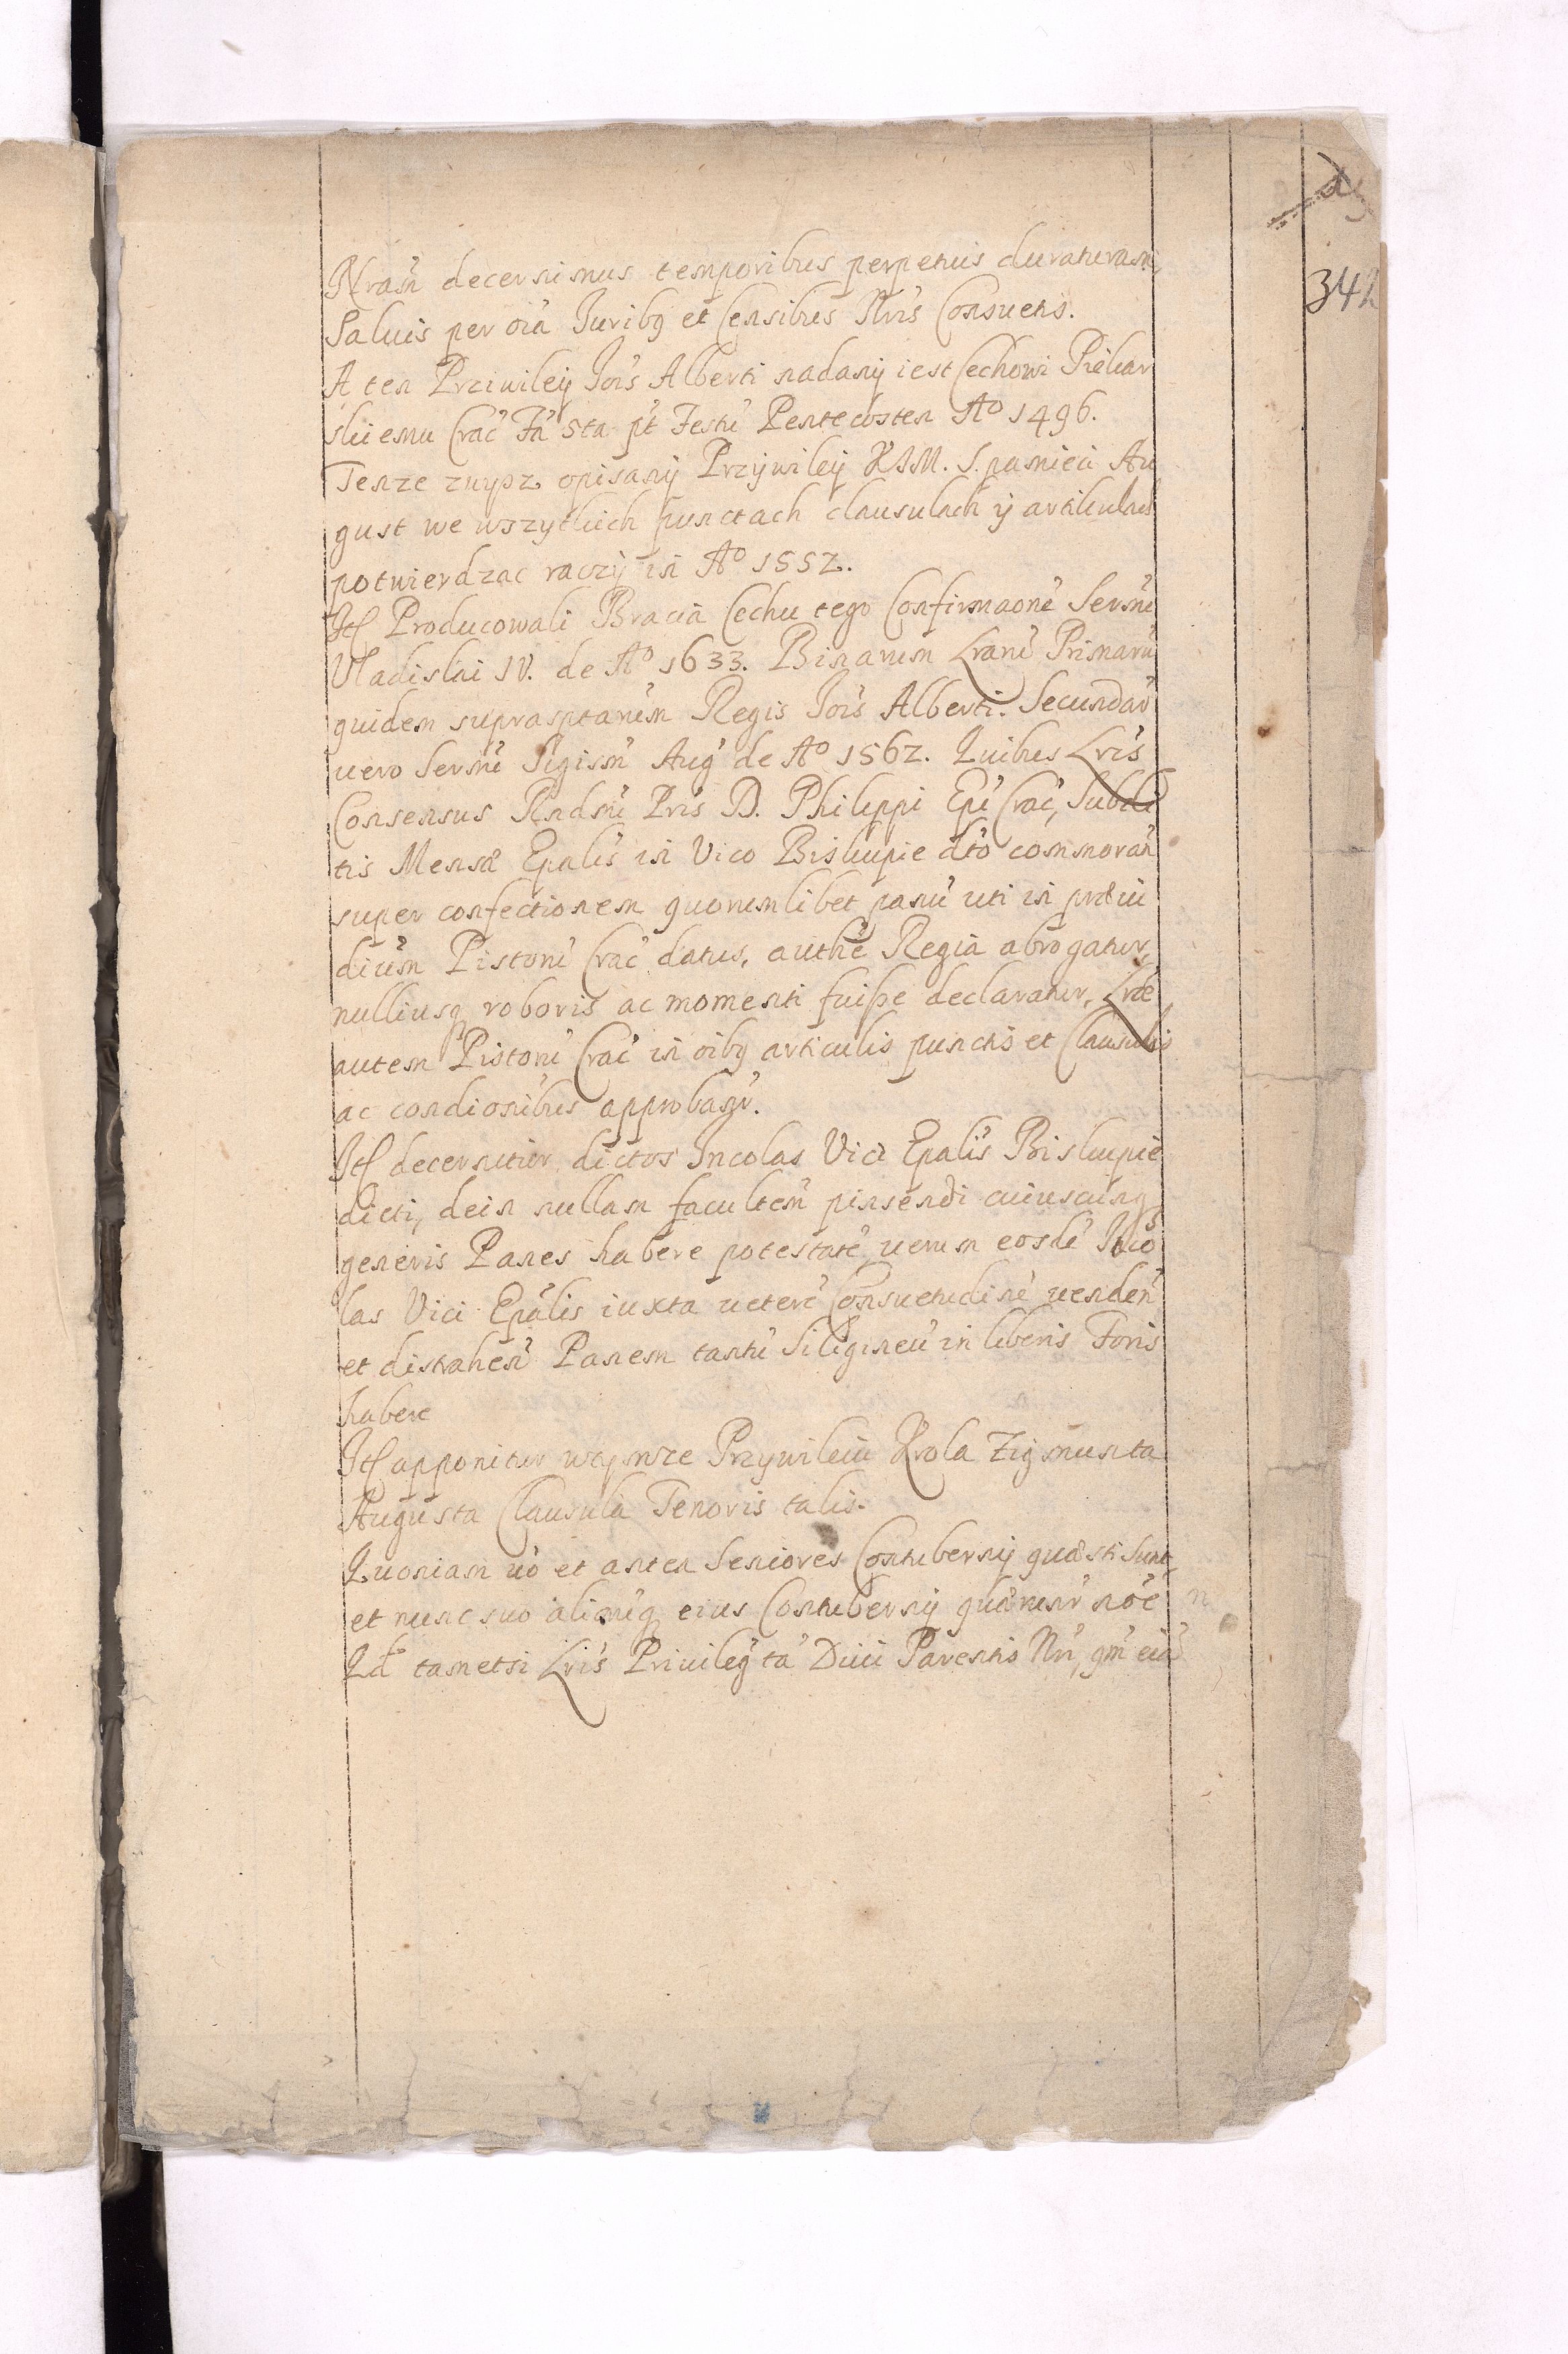 342
Nram̃ decernimus temporibus perpetuis duraturam,
Saluis per oiã Juribq et Censibus Nris Consuetis.
A ten Prziwiley Jois Alberti nadany iest Cechowi Piekar
skiemu Crac Fa 5ta pt Festu Pentecosten A° 1496.
Tenze zwysz opisany Przywiley KJM. S. pamieci Au
gust we wszytkich punctach clausulach y artikulach
potwierdzac raczy in A° 1552.
Itt Producowali Bracia Cechu tego Confirmaone Sermi
Vladislai IV. de A° 1633. Binarum Lraru Primaru
quidem suprasptarum Regis Jois Alberti. Secundar
uero Sermi Sigism Aug de A° 1562. Quibus Lris
Consensus Rndmi Pris D. Philippi Epi Crac, Subdi
tis Mensæ Epalis in Vico Biskupie dto commoran
super confectionem quorumlibet panu uti in præiu
dium Pistoru Crac datus, authe Regia abrogatur,
nulliusq roboris ac momenti fuisse declaratur, Lræ
autem Pistoru Crac in oibq articulis punctis et Clausulis
ac condionibus approbanr.
Itt decernitur dictos Incolas Vici Epalis Biskupie
dicti, dein nullam facultem pinsendi cuiuscunq
generis Panes habere potestate, uerum eosde Inco
las Vici Epalis iuxta uetere Consuetudine uenden
et distrahen Panem tantu Siligineu in liberis Foris
habere
Itt apponitur wtymze Przywileiu Krola Zigmunta
Augusta Clausula Tenoris talis.
Quoniam uo et antea Seniores Contubernij quæsti Sunt,
et nunc suo aliorumq eius Contubernij quærunr noe
Qd tametsi Lris Priuileg ta Diui Parentis Nri, qm eia